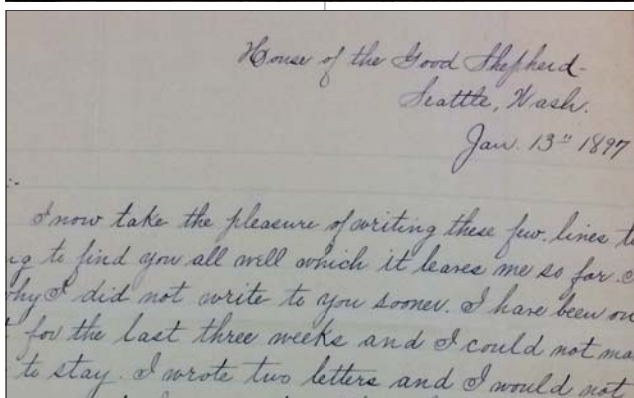 House of the Good Shepherd-
Seattle, Wash.
Jan. 13th 1897
:-
I now take the pleasure of writing these few lines
to find you all well which it leaves me so far.
why I did not write to you sooner. I have been
for the last three weeks and I could not
to stay. I wrote two letters and I would not